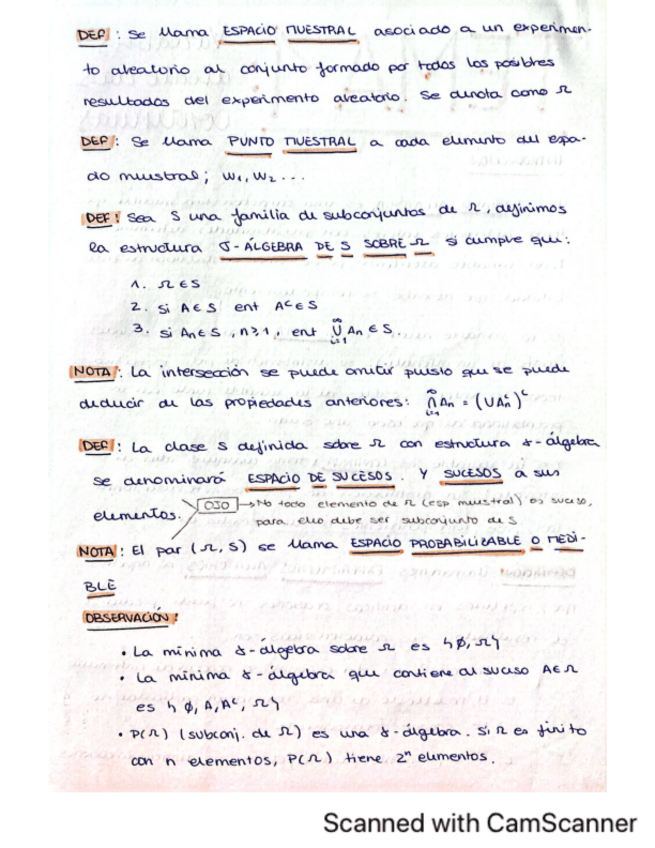 DEF: Se llama ESPACIO MUESTRAL asociado a un experimen-
to aleatorio al conjunto formado por todos los posibles
resultados del experimento aleatorio. Se denota como Ω
DEF: Se llama PUNTO MUESTRAL a cada elemento del espa-
cio muestral; W₁, W₂ ...
DEF: Sea S una familia de subconjuntos de Ω, definimos
la estructura σ-ÁLGEBRA DE S SOBRE Ω si cumple que:
1. Ω ∈ S
2. si A ∈ S ent Aᶜ ∈ S
3. si Aₙ ∈ S, n≥1, ent ∞∪i=1 Aₙ ∈ S.
NOTA: La intersección se puede omitir puesto que se puede
deducir de las propiedades anteriores: ∞∩i=1 Aₙ = (∪Aₙᶜ)ᶜ
DEF: La clase S definida sobre Ω con estructura σ-álgebra
se denominará ESPACIO DE SUCESOS. Y SUCESOS a sus
elementos. OJO → No todo elemento de Ω (esp muestral) es suceso,
para ello debe ser subconjunto de S
NOTA: El par (Ω, S) se llama ESPACIO PROBABILIZABLE O MEDI-
BLE
OBSERVACIÓN:
• La mínima σ-álgebra sobre Ω es {∅, Ω}
• La mínima σ-álgebra que contiene al suceso A∈Ω
es {∅, A, Aᶜ, Ω}
• P(Ω) (subconj. de Ω) es una σ-álgebra. Si Ω es finito
con n elementos, P(Ω) tiene 2ⁿ elementos.
Scanned with CamScanner